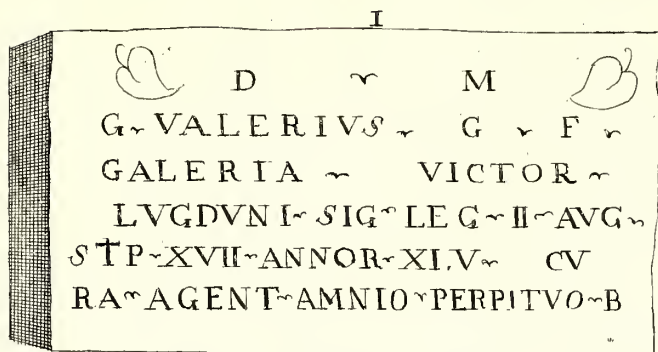 I
D M
G VALERIVS G F
GALERIA VICTOR
LVGDVNI SIG LEG II AVG
STP XVII ANNOR XLV CV
RA AGENT AMNIO PERPITVO B